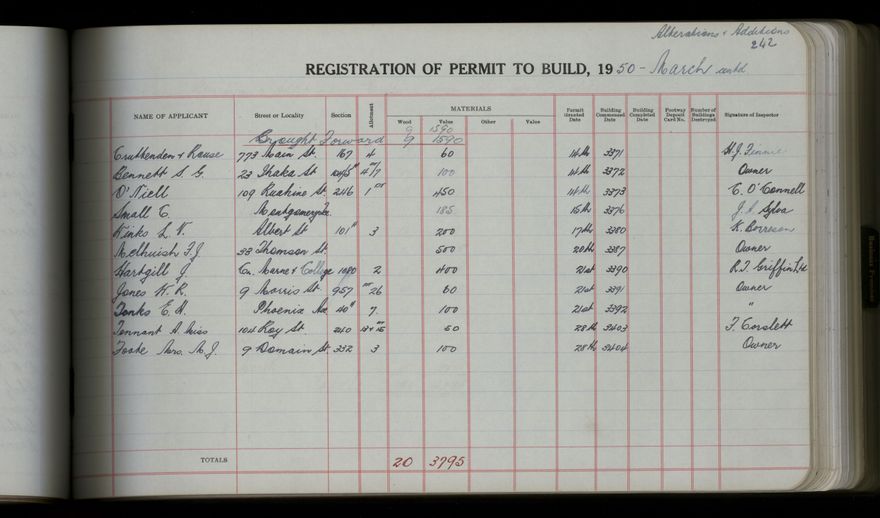 Alterations & Additions
242
REGISTRATION OF PERMIT TO BUILD, 1950 - March contd
NAME OF APPLICANT Street or Locality Section Allotment MATERIALS Permit Granted Date Building Commenced Date Building Completed Date Footway Deposit Card No. Number of Buildings Destroyed Signature of Inspector
Wood Value Other Value
9 1590
Brought Forward 9 1590
Cruttenden & Rouse 773 Main St. 167 4 60 14th 3371 H.J.
Bennett S. G. 23 Ithaka St. 100 14th 3372 Owner
O'Niell 109 Ruahine St. 246 1 450 14th 3373 C. O'Connell
Small C Montgomery Tce. 185 15th 3376 Sylva
Kinks L. V. Albert St 101 3 200 17th 3380 K. Borreson
Melhuish F. J. 38 Thomson St. 500 20th 3387 Owner
Hartgill J. Cn. Marne & College 1080 2 400 21st 3390 R.T. Griffin Ltd
Jones K. R. 9 Morris St. 957 26 60 21st 3391 Owner
Tonks E. A. Phoenix Ave 40 7 100 21st 3392 "
Tennant A. Miss 104 Roy St. 240 50 28th 3403 F. Corslett
Foote Mrs. M. J. 9 Domain St. 332 3 100 28th 3404 Owner
TOTALS 20 3795